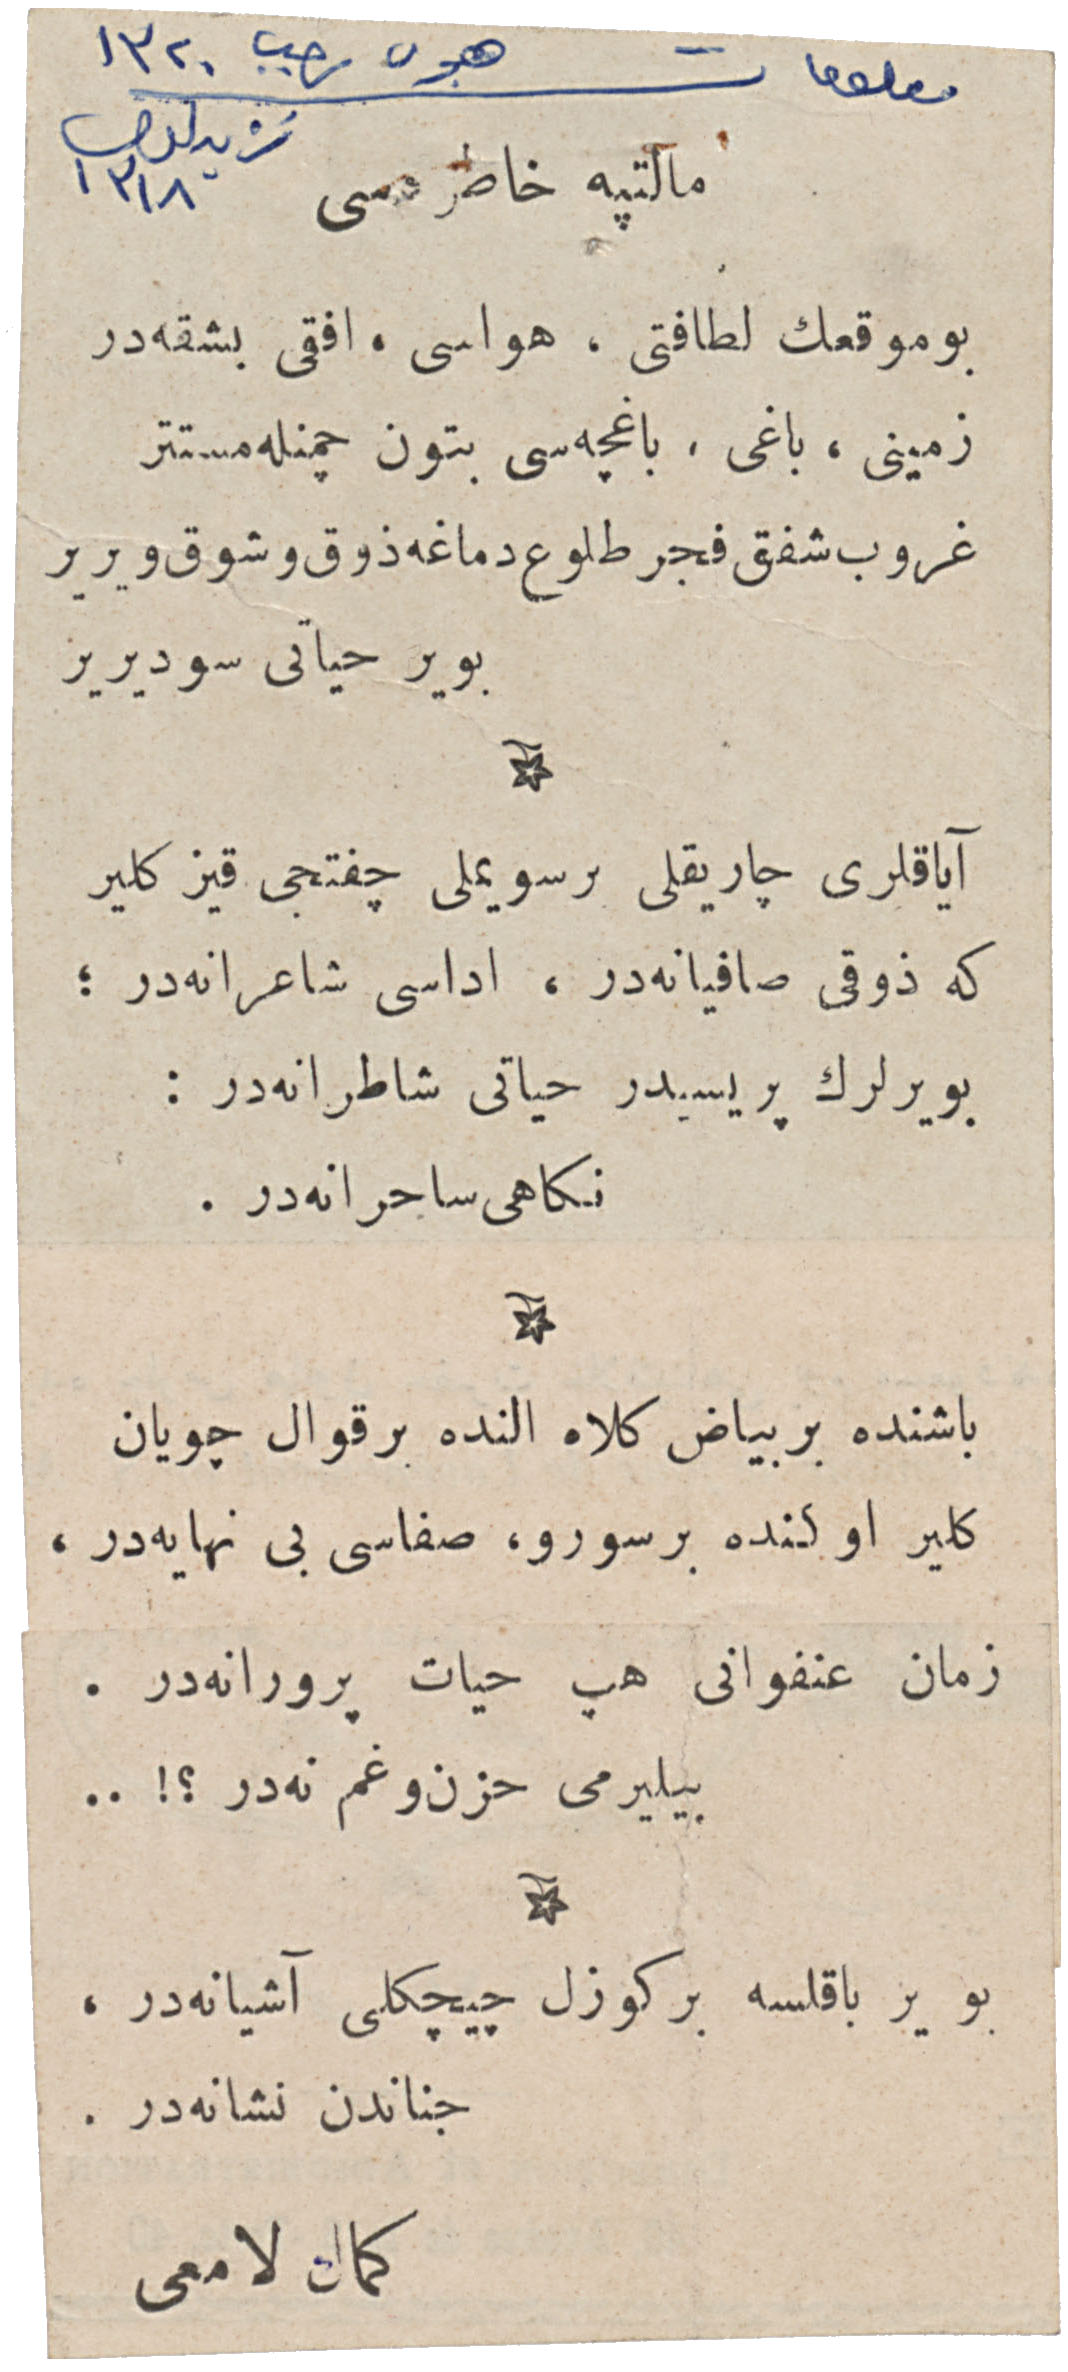 معلومات هجری رجب ١٣٢٠
١٣١٨
مالتپه خاطره‌سی
بو موقعك لطافتی ، هواسی ، افقی بشقه‌در
زمینی ، باغی ، باغچه‌سی بتون چمنله مستتر
غروب شفق فجر طلوع دماغه ذوق و شوق ویریر
بو یر حیاتی سودیریر
آیاقلری چاریقلی بر سویملی چفتجی قیز کلیر
که ذوقی صافیانه‌در ، اداسی شاعرانه‌در ؛
بو یرلرك پریسیدر حیاتی شاطرانه‌در :
نکاهی ساحرانه‌در .
باشنده بر بیاض کلاه النده بر قوال چوبان
کلیر اوکنده بر سورو، صفاسی بی نهایه‌در ،
زمان عنفوانی هپ حیات پرورانه‌در .
بیلیرمی حزن و غم نه‌در ؟! ..
بو یر باقلسه بر کوزل چیچکلی آشیانه‌در ،
جناندن نشانه‌در .
کمال لامعی